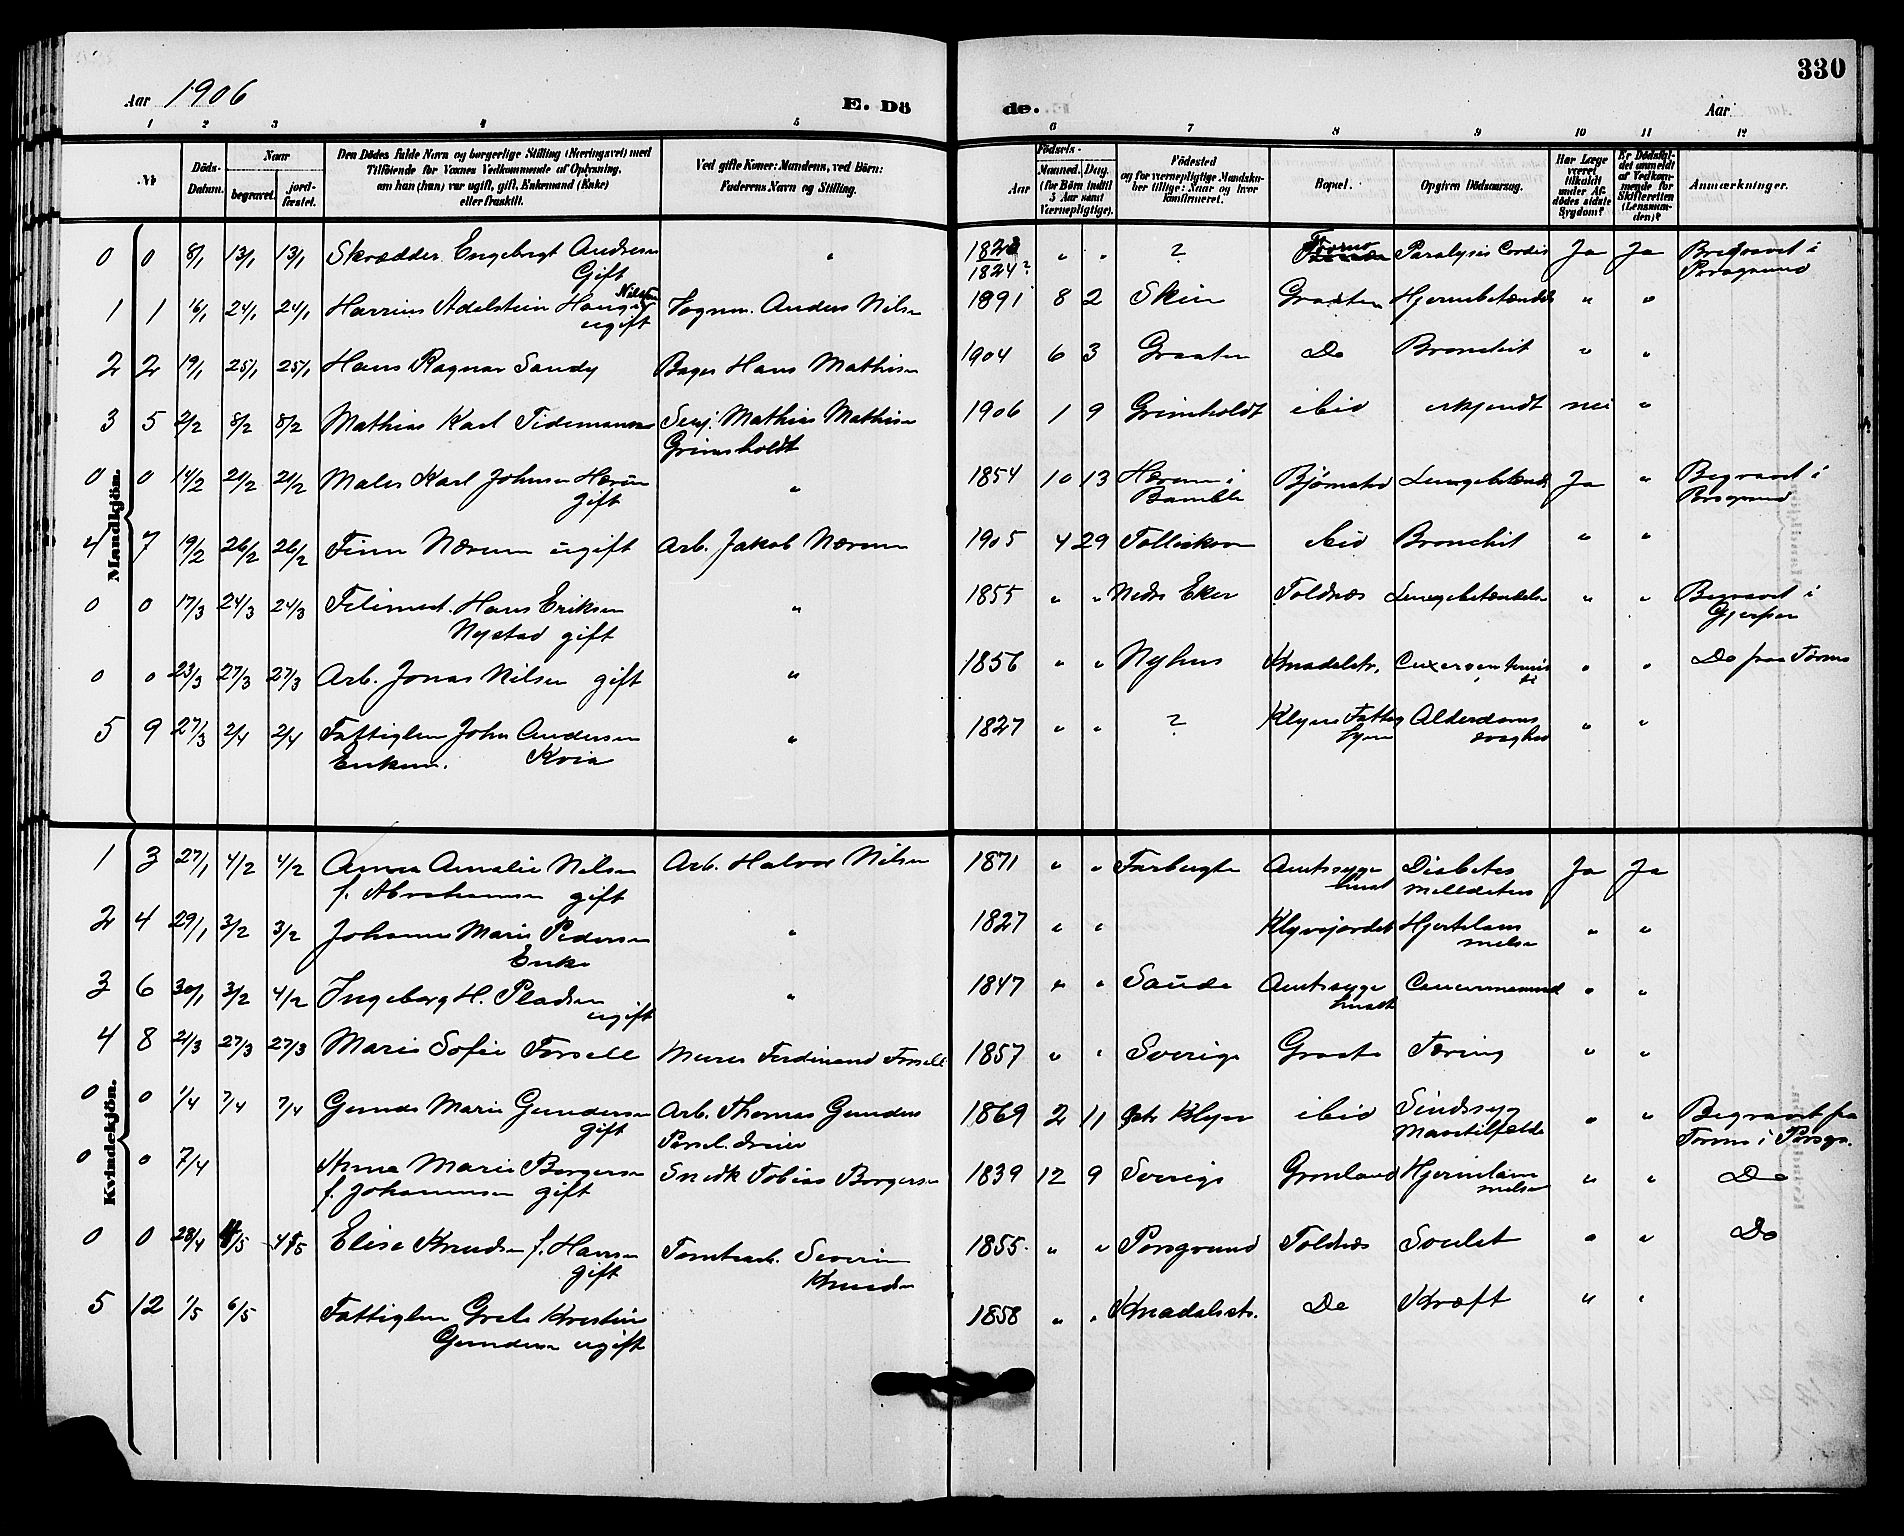 330
Aar 1906
E. Dö
de.
Aar
1 2 3 4 5 6 7 8 9 10 11 12
Nr
Döds-
Datum.
Naar
begravet.
jord-
fæstet.
Den Dödes fulde Navn og borgerlige Stilling (Næringsvei) med
Tilföiende for Voxnes Vedkommende af Oplysning,
om han (hun) var ugift, gift, Enkemand (Enke)
eller fraskilt.
Ved gifte Koner: Mandens, ved Börn:
Faderens Navn og Stilling.
Födsels-
Aar
Maaned. Dag.
(for Börn indtil
5 Aar samt
Værnepligtige).
Födested
og for værnepligtige Mandskaber
tillige: Naar og hvor
konfirmeret.
Bopæl.
Opgiven Dödsaarsag.
Har Læge
været
tilkaldt
under Afdödes
sidste
Sygdom?
Er Dödsfaldet
anmeldt
af Vedkommende
for
Skifteretten
(Lensmanden)?
Anmærkninger.
Mandkjön.
0 0 8/1 13/1 13/1 Skrædder Engebregt Andresen " 1823 " " ? Paralysis Cordis Ja Ja Begravet i
Gift 1824? Porsgrund
1 1 16/1 24/1 24/1 Adelstein Nilsen Anders Nilsen 1891 8 2 Skien Graaten Hjernebetændelse " "
ugift
2 2 19/1 25/1 25/1 Hans Ragnar Sandy Bager Hans Mathisen 1904 6 3 Graaten Do Bronchit " "
3 5 2/2 8/2 8/2 Mathias Karl Tidemansen Mathias Mathisen 1906 1 9 Grimholdt ibid ukjendt nei "
Grimsholdt
0 0 14/2 21/2 21/2 Maler Karl Johnsen gift " 1854 10 13 i Bamble Lungebetænd. Ja " Begravet i
Porsgrund
4 7 19/2 26/2 26/2 Finn Nærum ugift Arb. Jakob Nærum 1905 4 29 ibid Bronchit " "
0 0 17/3 24/3 24/3 Hans Eriksen " 1855 " " Nedre Eker Toldnes Lungebetændelse " " Begravet i
Nystad gift Gjerpen
0 0 23/3 27/3 27/3 Arb. Jonas Nilsen gift " 1856 " " Nyhus Knadalstr. " " Do fra
5 9 27/3 2/4 2/4 Fattiglem John Andersen " 1827 " " ? Alderdoms " "
Enkem. Kvia svaghed
Kvindekjön.
1 3 27/1 4/2 4/2 Anna Amalie Nilsen Arb. Halvor Nilsen 1871 " " Amtssyge Diabetes Ja Ja
f. Abrahamsen gift huset
2 4 29/1 3/2 3/2 Johanne Marie Pedersen " 1827 " " Klyvejordet Hjertelam " "
Enke melse
3 6 30/1 3/2 4/2 Ingeborg H. Pladsen " 1847 " " Saude Amtssyge " "
ugift huset
4 8 21/3 27/3 27/3 Marie Sofie Forsell Murer Ferdinand Forsell 1857 " " Sverige Graaten Tæring " "
0 0 1/4 7/4 7/4 Gunda Marie Gundersen Arb. Thomas Gunders 1869 2 11 ibid Sindssyg " " Begravet fra
gift i Porsgr.
0 0 7/4 Anna Marie Borgersen Snedk Tobias Borgersen 1839 12 9 Sverige Grønland Hjernelam " " Do
f. Johannesen gift melse
0 0 28/4 4/5 4/5 Elise Knudsen f. Hansen Severin 1855 " " Porsgrund Toldnes " " Do
gift Knudsen
5 12 1/5 6/5 Fattiglem Grete Kirstine 1858 " " Knadalsstr. Do Kræft " "
Gundersen ugift